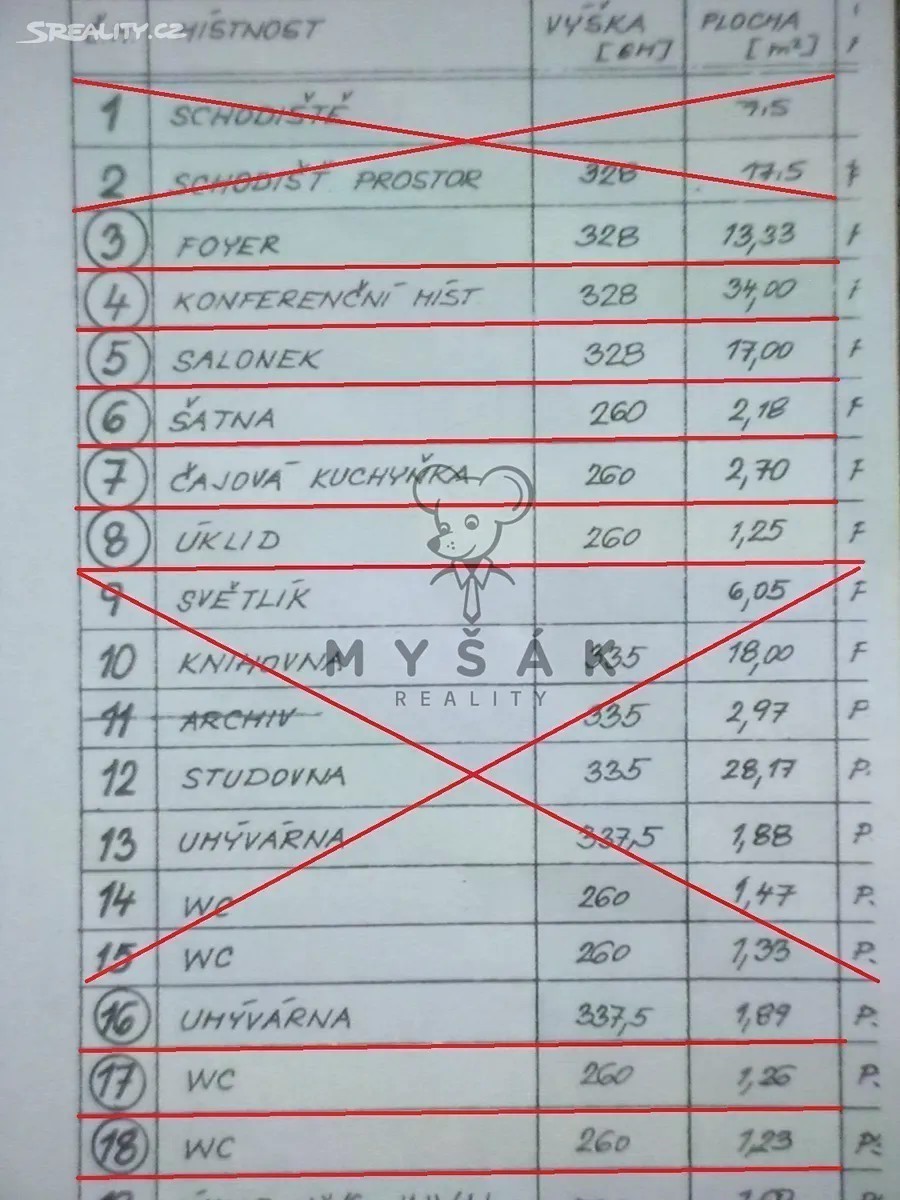 SREALITY.CZ
MÍSTNOST VÝŠKA [CM] PLOCHA [m²]
1 SCHODIŠTĚ 7,5
2 SCHODIŠŤ PROSTOR 328 17,5
3 FOYER 328 13,33 F
4 KONFERENČNÍ MÍST 328 34,00
5 SALONEK 328 17,00 F
6 ŠATNA 260 2,18 F
7 ČAJOVÁ KUCHYŇKA 260 2,70 F
8 ÚKLID 260 1,25 F
9 SVĚTLÍK 6,05 F
10 KNIHOVNA 335 18,00 F
11 ARCHIV 335 2,97 P
12 STUDOVNA 335 28,17 P.
13 UMÝVÁRNA 337,5 1,88 P
14 WC 260 1,47 P.
15 WC 260 1,33 P.
16 UMÝVÁRNA 337,5 1,89 P.
17 WC 260 1,26 P.
18 WC 260 1,23 P.
MYŠÁK
REALITY